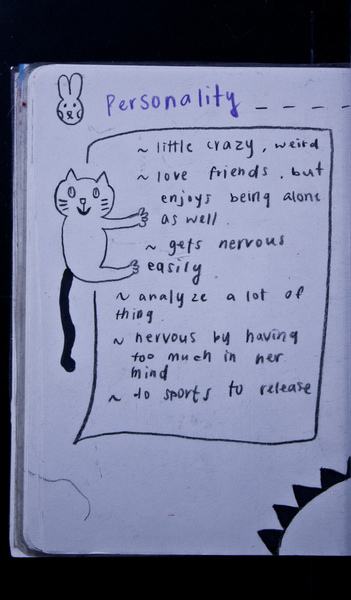 Personality
~ little crazy, weird
~ love friends, but
enjoys being alone
as well.
~ gets nervous
easily
~ analyze a lot of
thing.
~ nervous by having
too much in her
mind
~ do sports to release